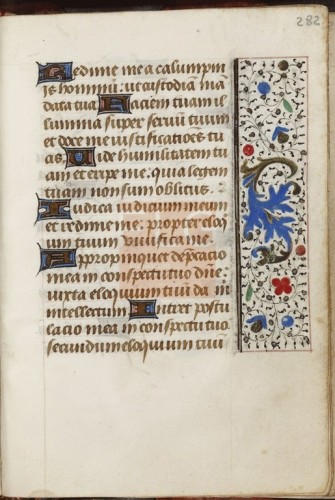 282
Redime me a calumpni
is hominū: ut custodiā mā
data tua Faciem tuam il
lumina super seruū tuum
et doce me iustificatiōēs tu
as. Vide humilitatem tu
am et eripe me. quia legem
tuam non sum oblitus.
Iudica iudicium meum
et redime me. propter eloq̄
um tuum viuifica me.
Appropinquet deṗcacio
mea in conspectu tuo dn̄e:
iuxta eloquium tuū da m̄
intellectum Intret postu
lacio mea in conspectu tuo
secundum eloquium tuū